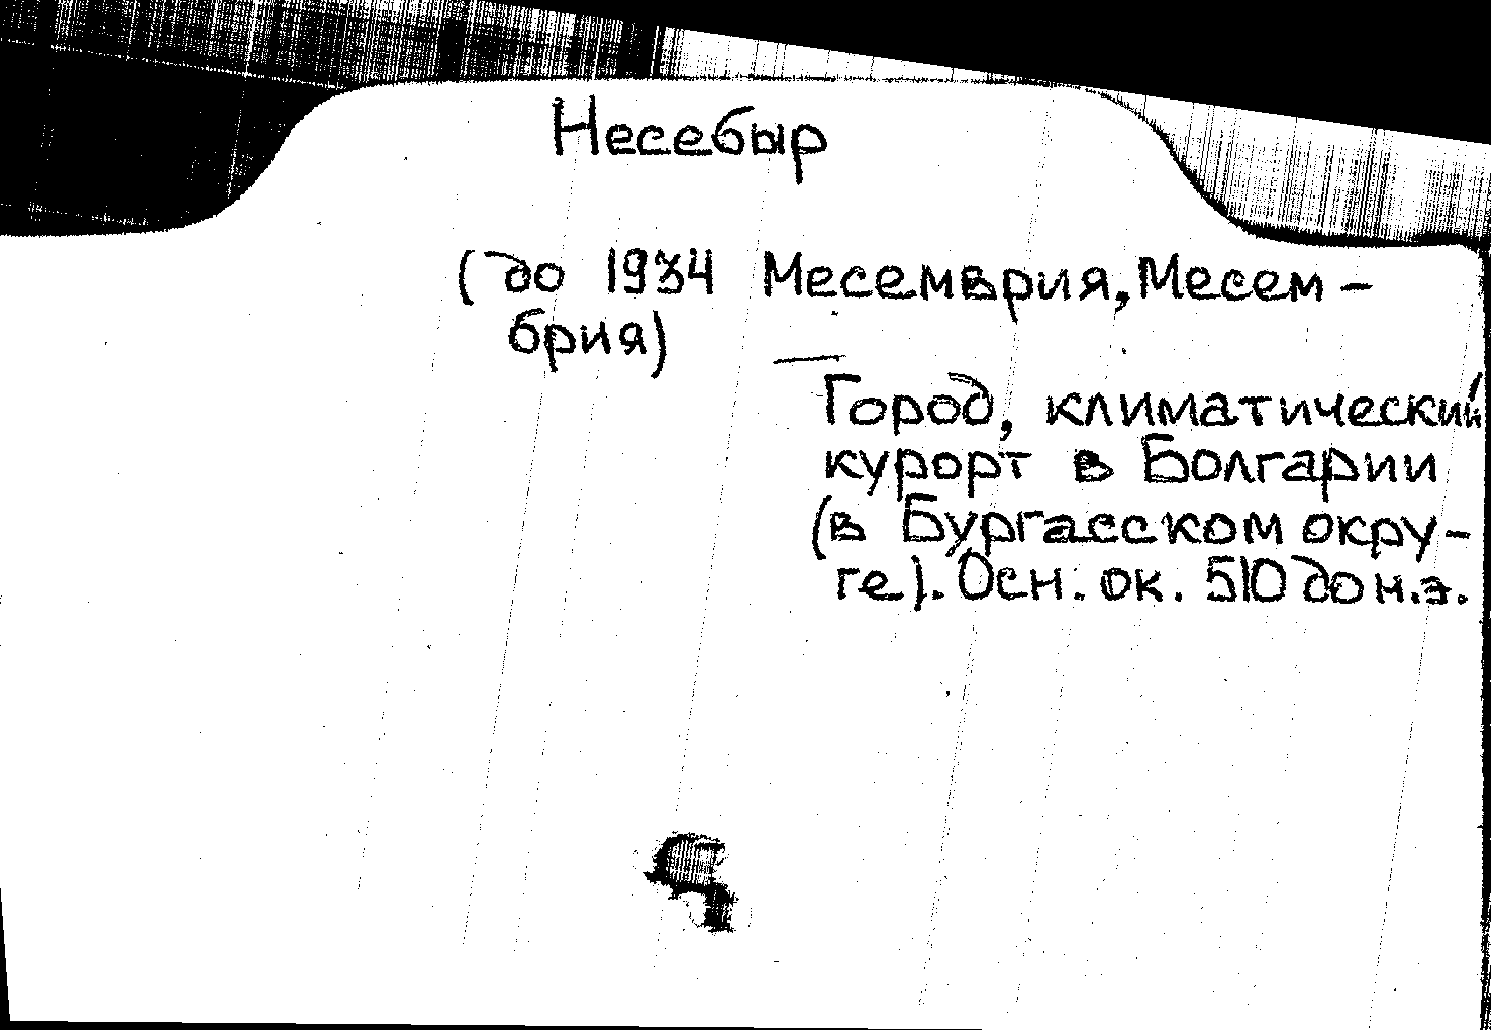 Несебыр
(до 1934 Месемврия, Месем-
брия)
Город, климатический
курорт в Болгарии
(в Бургасском окру-
ге). Осн. ок. 510 до н.э.